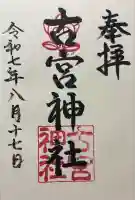 奉拝
古宮神社
令和七年八月十七日
古宮神社